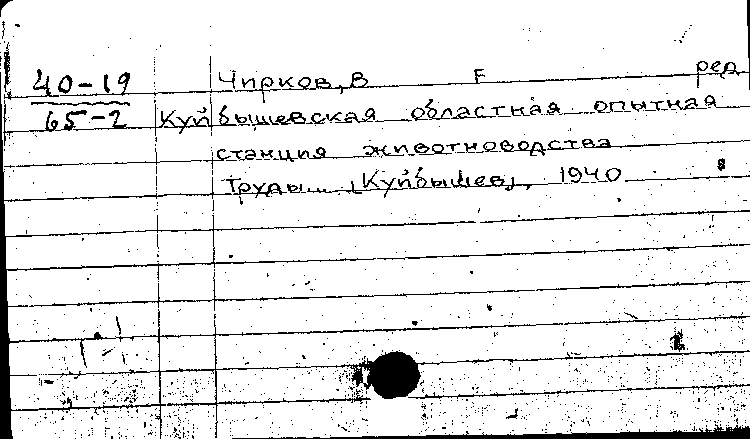 40-19 Чирков, В F ред
65-2 Куйбышевская областная опытная
станция животноводства
Труды... [Куйбышев], 1940